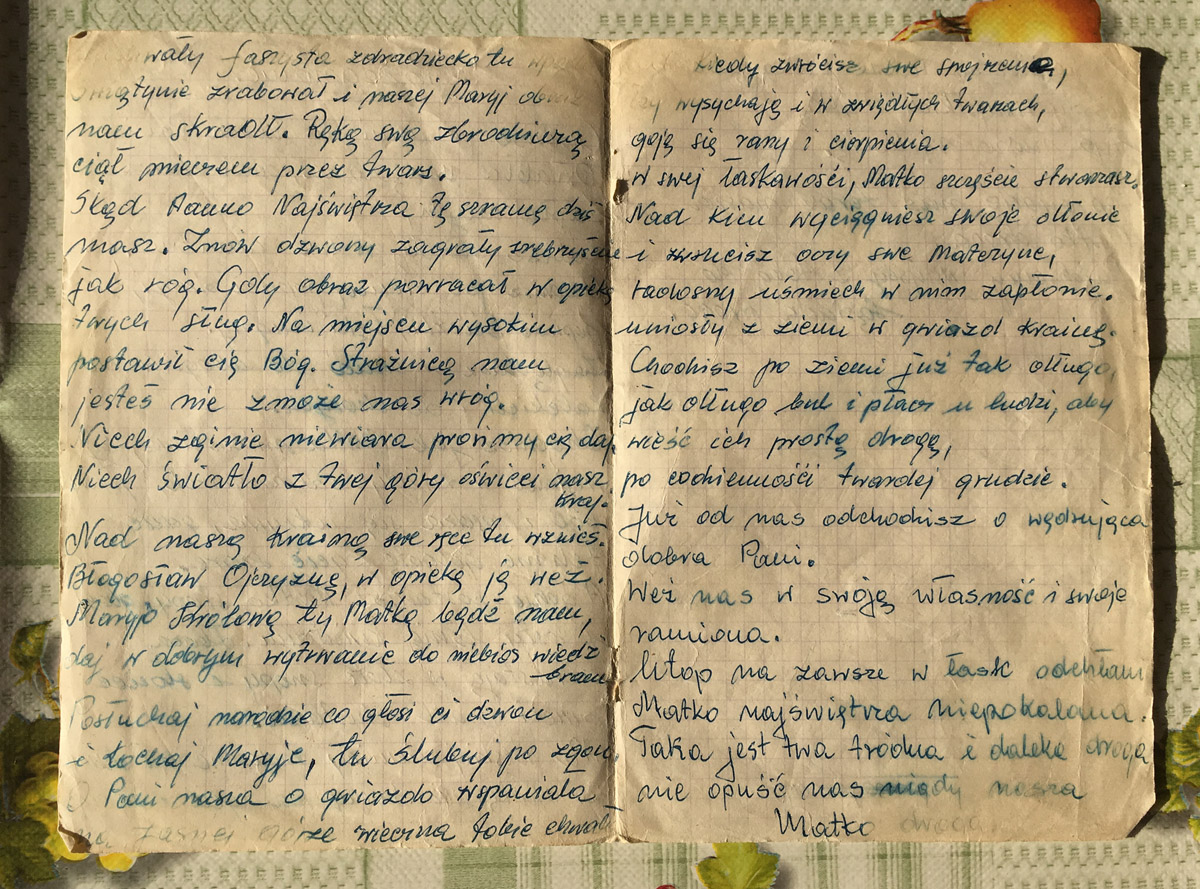 wały faszysta zdradziecko tu
Świątynie zrabował i naszej Maryj obraz
nam skradł. Ręką swą zbrodniczą
ciął mieczem przez twarz.
Skąd Panno Najświętrza tę szramę dziś
masz. Znów dzwony zagrały srebrzyście
jak róg. Gdy obraz powracał w opiekę
twych sług. Na miejscu wysokim
postawił cię Bóg. Strażnicą nam
jesteś nie zmoże nas wróg.
Niech zginie niewiara prośmy cię daj.
Niech światło z twej góry oświeci nasz
kraj.
Nad naszą Krainą swe ręce tu wznieś.
Błogosław Ojczyznę, w opiekę ją weź.
Maryjo Królową ty Matką bądź nam,
daj w dobrym wytrwanie do niebios wiedź
bram
Posłuchaj narodzie co głosi ci dzwon
i kochaj Maryję, tu ślubuj po zgon.
O Pani nasza o gwiazdo wspaniała
na Jasnej Górze wieczna tobie chwała
kiedy zwrócisz swe spojrzenie,
łzy wysychają i w zwiędłych twarzach,
goją się rany i cierpienia.
W swej łaskawości, Matko szczęście stwarzasz.
Nad kim wyciągniesz swoje dłonie
i zwrócisz oczy swe Matczyne,
radosny uśmiech w nim zapłonie.
uniosły z ziemi w gwiazd krainę.
Chodzisz po ziemi już tak długo,
jak długo bul i płacz u ludzi, aby
wieść ich prostą drogą,
po codzienności twardej grudzie.
Już od nas odchodzisz o wędrująca
dobra Pani.
Weź nas w swóją własność i swoje
ramiona.
litop na zawsze w łask odchłani
Matko najświętrza niepokalana.
Taka jest twa tródna i daleka droga
nie opuść nas nigdy nasza
Matko droga